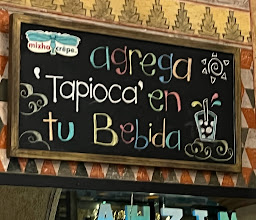 mizha crêpe
agrega
'Tapioca' en
tu Bebida